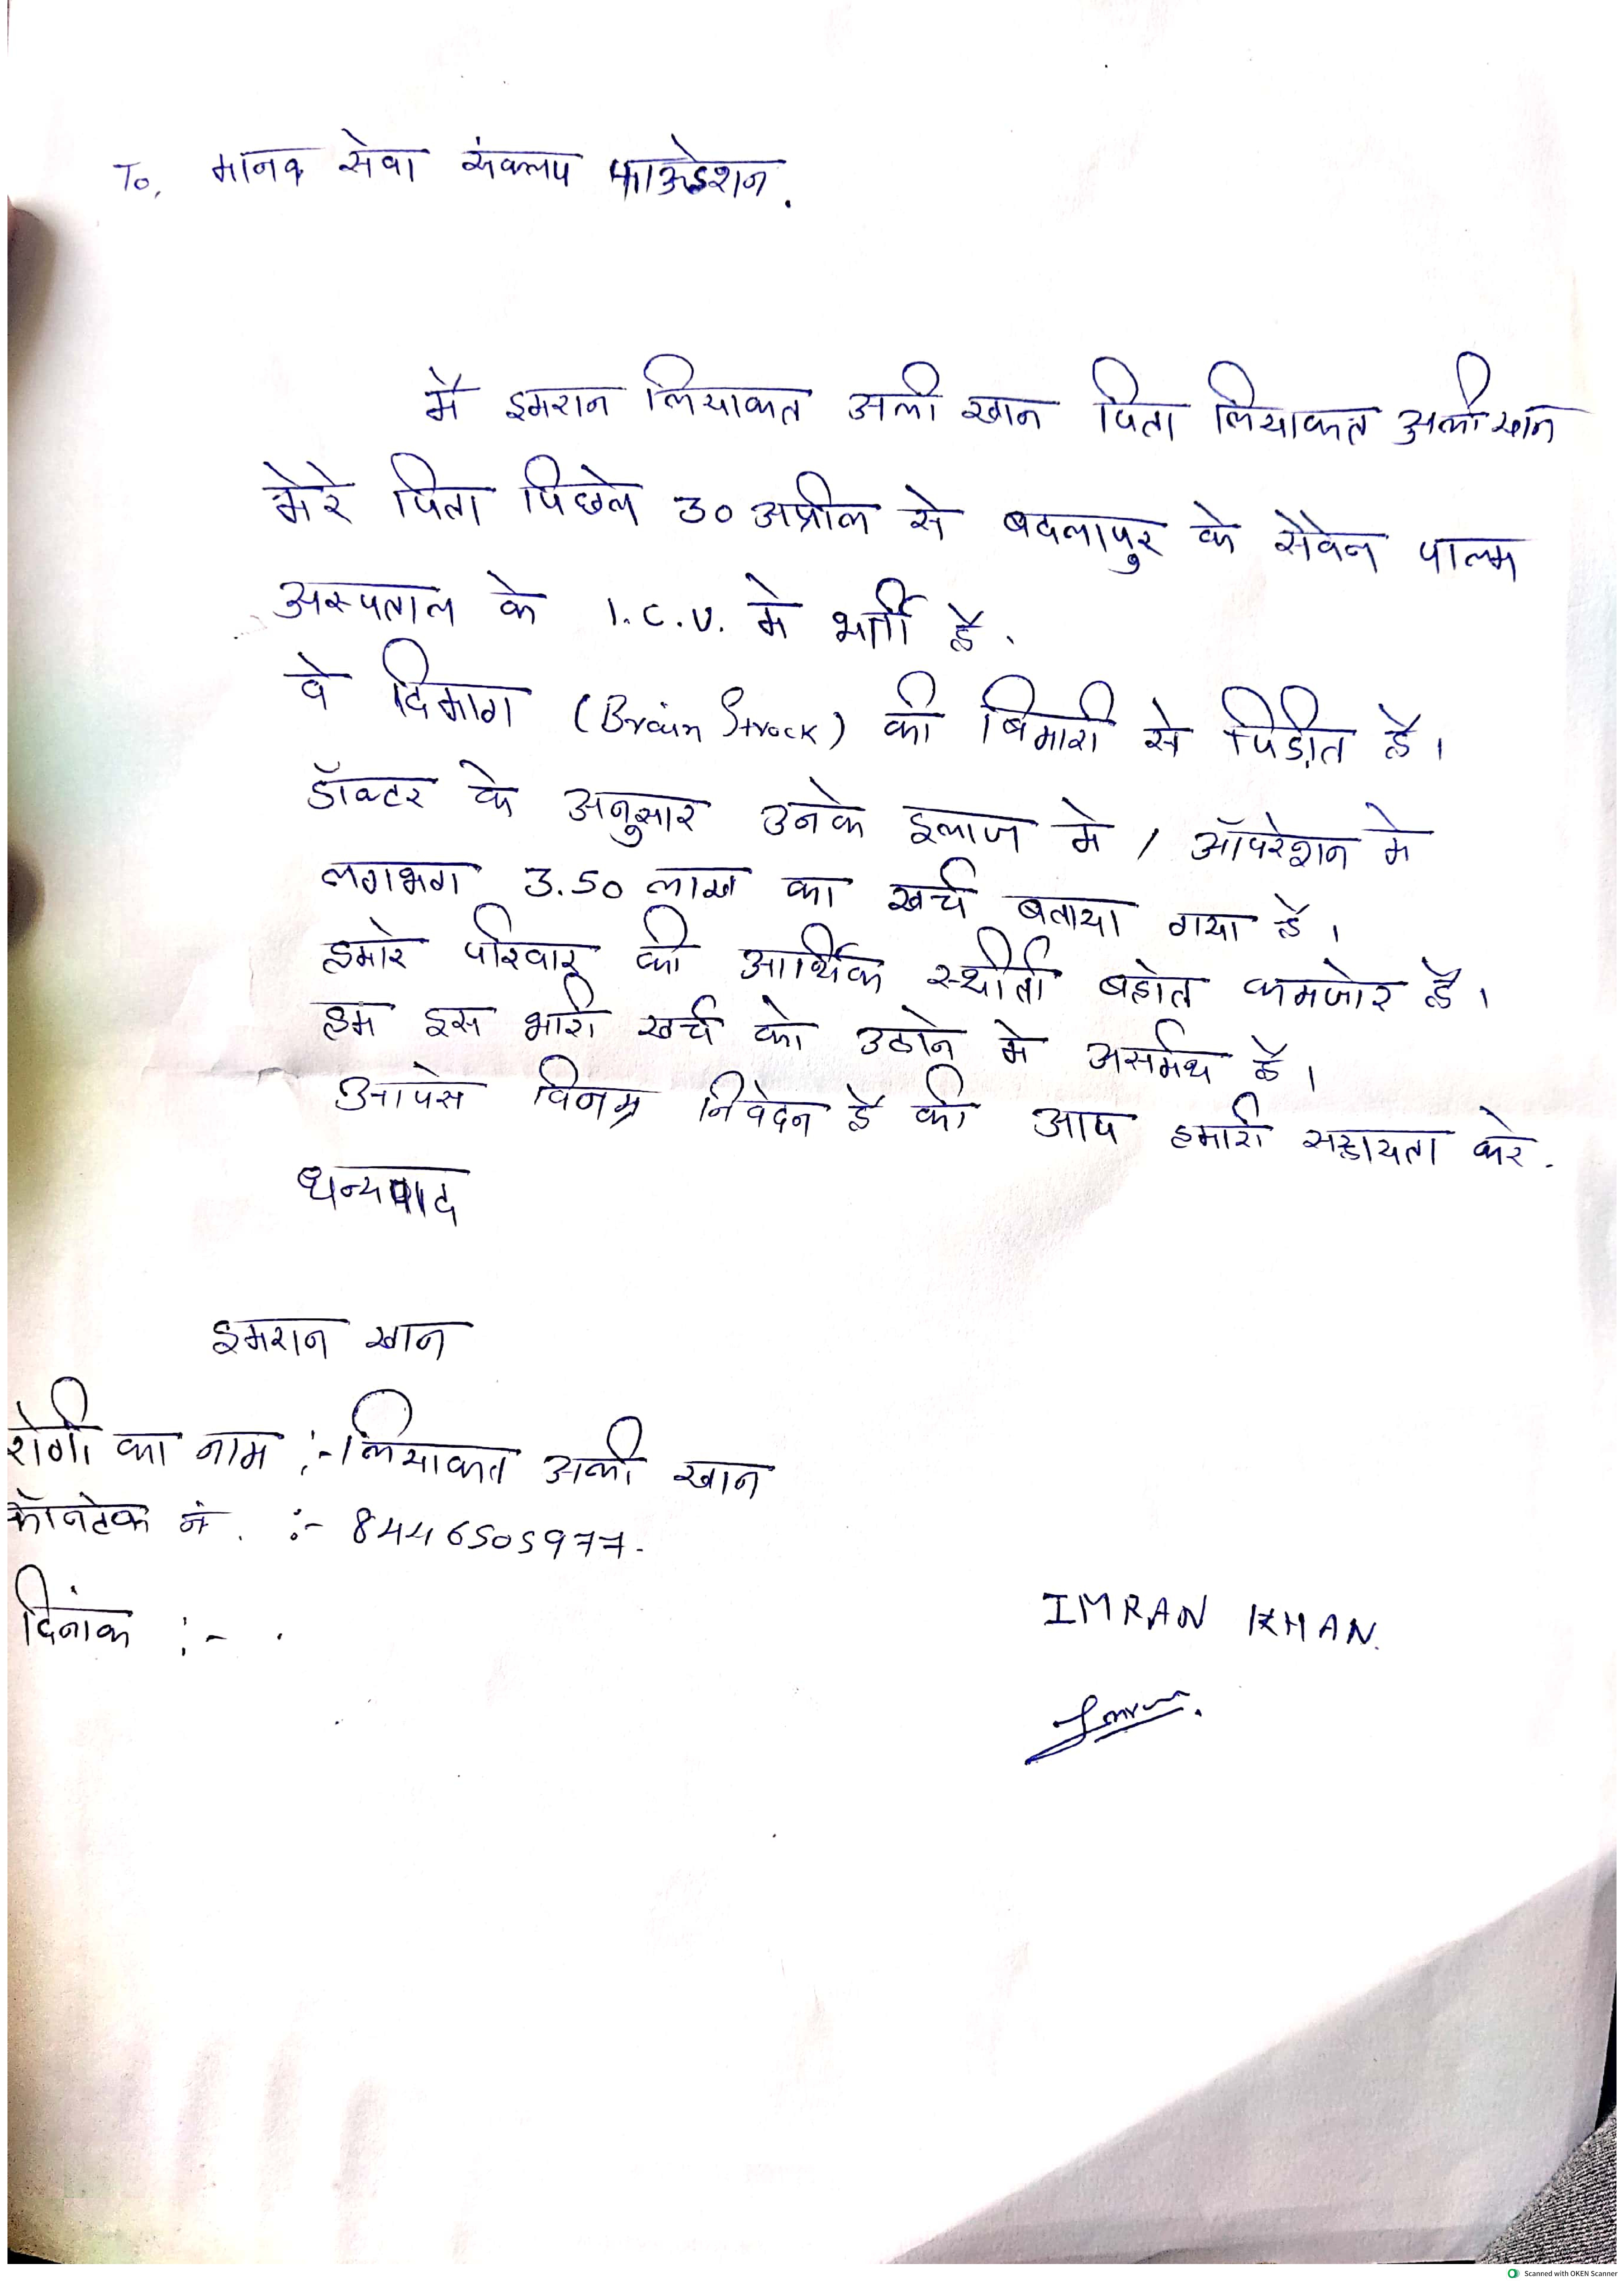 To, मानव सेवा संकल्प फाऊडेशन.
मै इमरान लियाकत अली खान पिता लियाकत अली खान
मेरे पिता पिछले 30 अप्रील से बदलापुर के सेवेन पाल्म
अस्पताल के I.C.U. मे भर्ती है.
वे दिमाग (Brain Strock) की बिमारी से पिडीत है।
डॉक्टर के अनुसार उनके इलाज मे / ऑपरेशन मे
लगभग 3.50 लाख का खर्च बताया गया है।
हमारे परिवार की आर्थिक स्थीती बहोत कमजोर है।
हम इस भारी खर्च को उठाने मे असर्मथ है।
आपसे विनम्र निवेदन है की आप हमारी सहायता करे.
धन्यवाद
इमरान खान
रोगी का नाम :- लियाकत अली खान
कॉनटेक नं. :- 8446505977.
दिनांक :- .
IMRAN KHAN.
Imran.
Scanned with OKEN Scanner